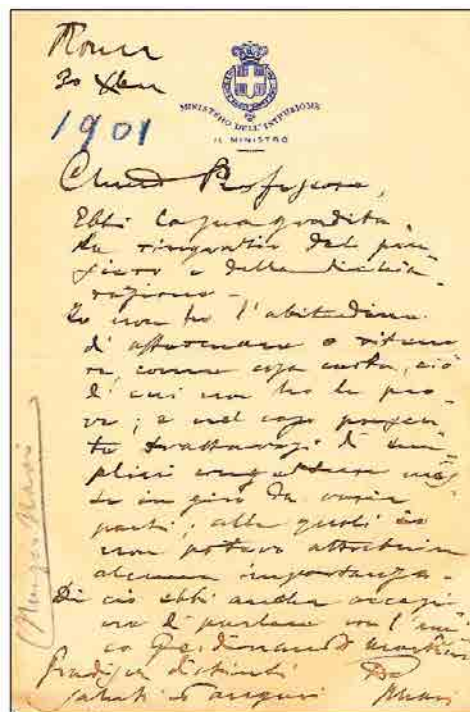 Roma
30 Xbre
1901
MINISTERO DELL'ISTRUZIONE
IL MINISTRO
Professore,
Ebbi la sua gradita.
La ringrazio del pen-
siero e della dichia-
razione -
Io non ho l'abitudine
di affermare o ritene-
re, come cosa certa, ciò
di cui non ho le pro-
ve; e nel caso presen-
te trattavasi di sem-
plici congetture mes-
se in giro da varie
parti, alle quali io
non potevo attribuire
alcuna importanza -
Di ciò ebbi anche occasi-
one di parlare con l'ami-
co Ferdinando Martini
Gradisca distinti
saluti ed auguri
Nasi
(Nunzio Nasi)